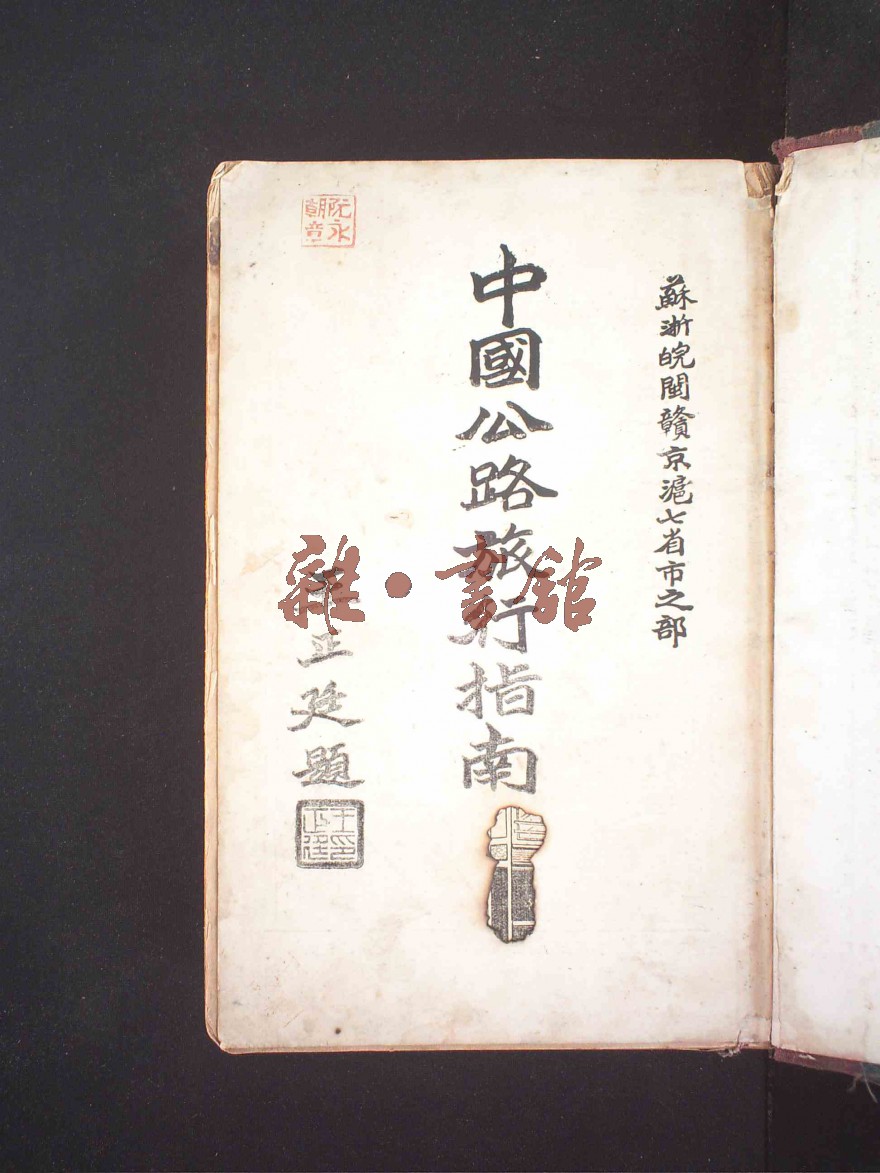 蘇浙皖閩贛京滬七省市之部
中國公路旅行指南
王正廷題
王正廷印
阮永朝章
雜·書館